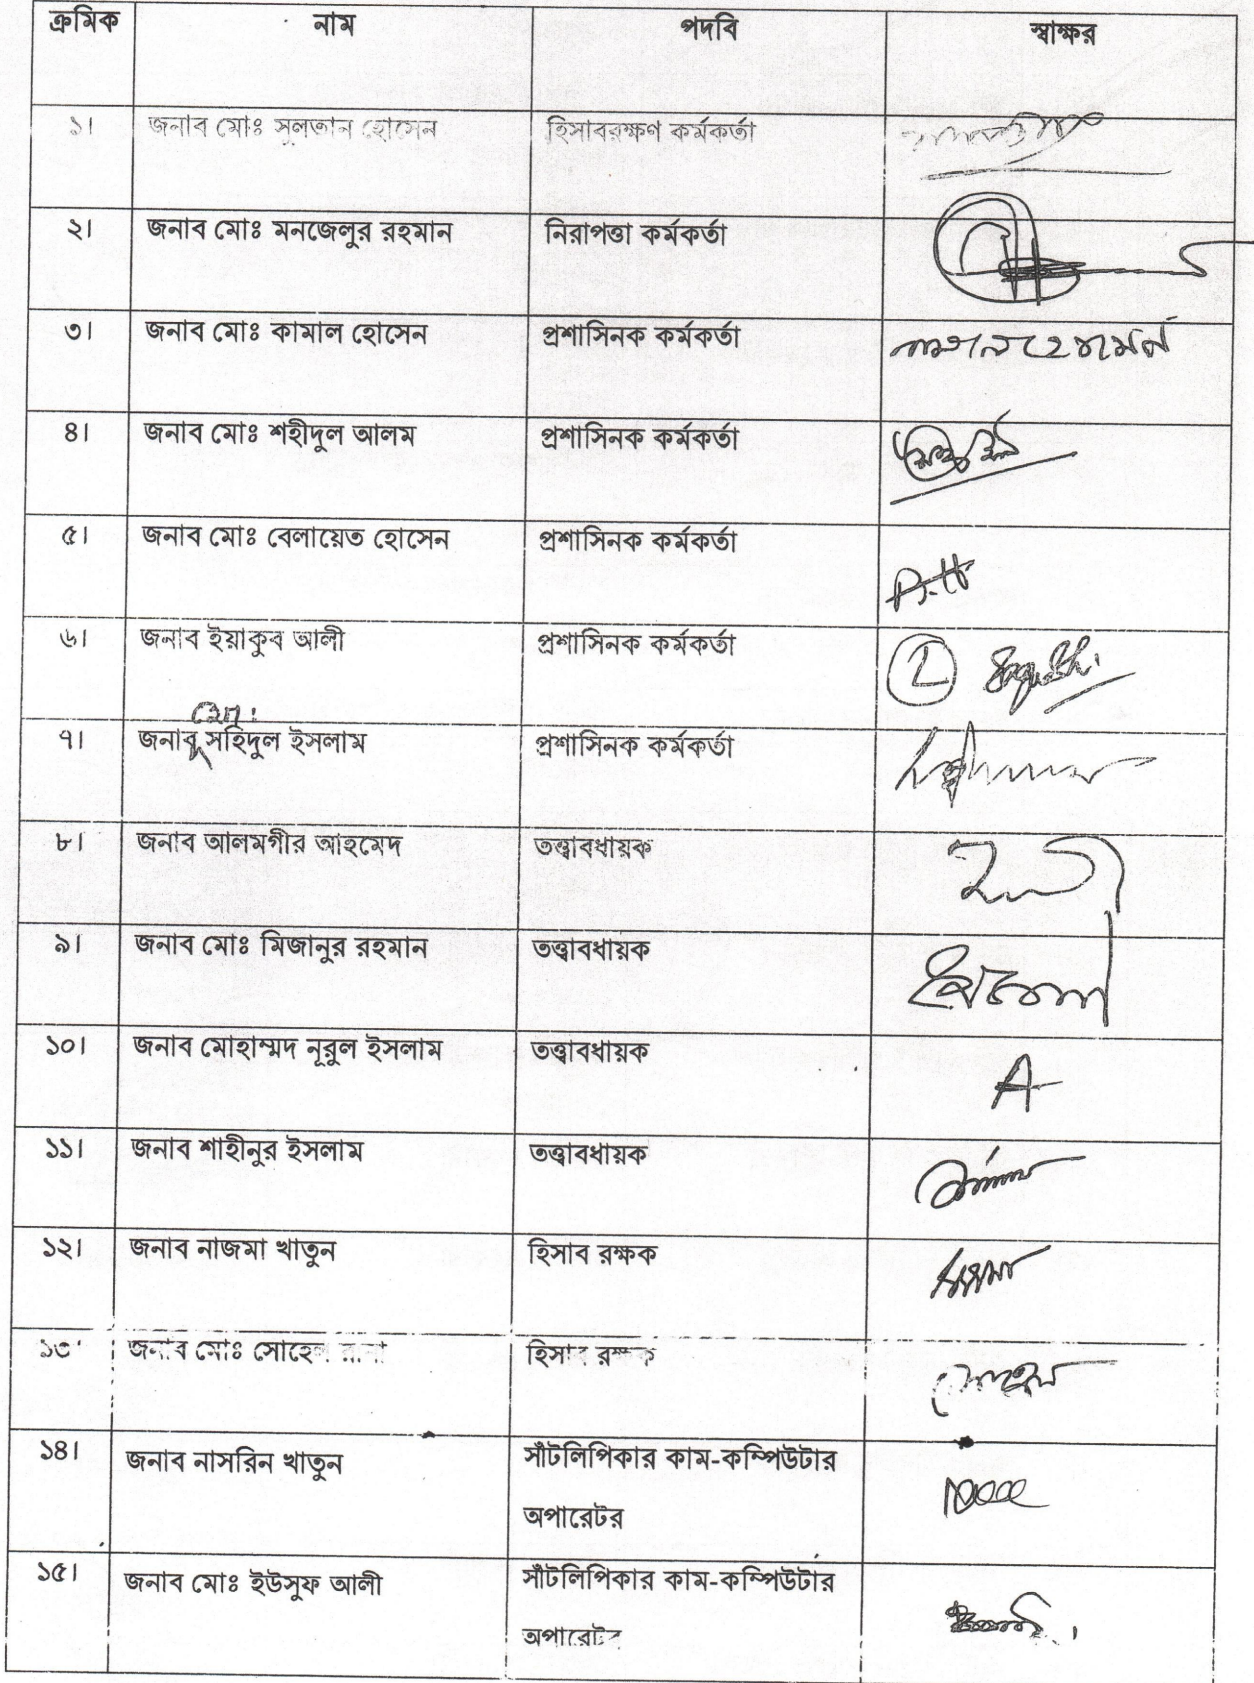 ক্রমিক নাম পদবি স্বাক্ষর
১। জনাব মোঃ সুলতান হোসেন হিসাবরক্ষণ কর্মকর্তা
২। জনাব মোঃ মনজেলুর রহমান নিরাপত্তা কর্মকর্তা
৩। জনাব মোঃ কামাল হোসেন প্রশাসিনক কর্মকর্তা
৪। জনাব মোঃ শহীদুল আলম প্রশাসিনক কর্মকর্তা
৫। জনাব মোঃ বেলায়েত হোসেন প্রশাসিনক কর্মকর্তা
৬। জনাব ইয়াকুব আলী প্রশাসিনক কর্মকর্তা
মো:
৭। জনাব সহিদুল ইসলাম প্রশাসিনক কর্মকর্তা
৮। জনাব আলমগীর আহমেদ তত্ত্বাবধায়ক
৯। জনাব মোঃ মিজানুর রহমান তত্ত্বাবধায়ক
১০। জনাব মোহাম্মদ নূরুল ইসলাম তত্ত্বাবধায়ক
১১। জনাব শাহীনুর ইসলাম তত্ত্বাবধায়ক
১২। জনাব নাজমা খাতুন হিসাব রক্ষক
১৩। জনাব মোঃ সোহেল রানা হিসাব রক্ষক
১৪। জনাব নাসরিন খাতুন সাঁটলিপিকার কাম-কম্পিউটার
অপারেটর
১৫। জনাব মোঃ ইউসুফ আলী সাঁটলিপিকার কাম-কম্পিউটার
অপারেটর